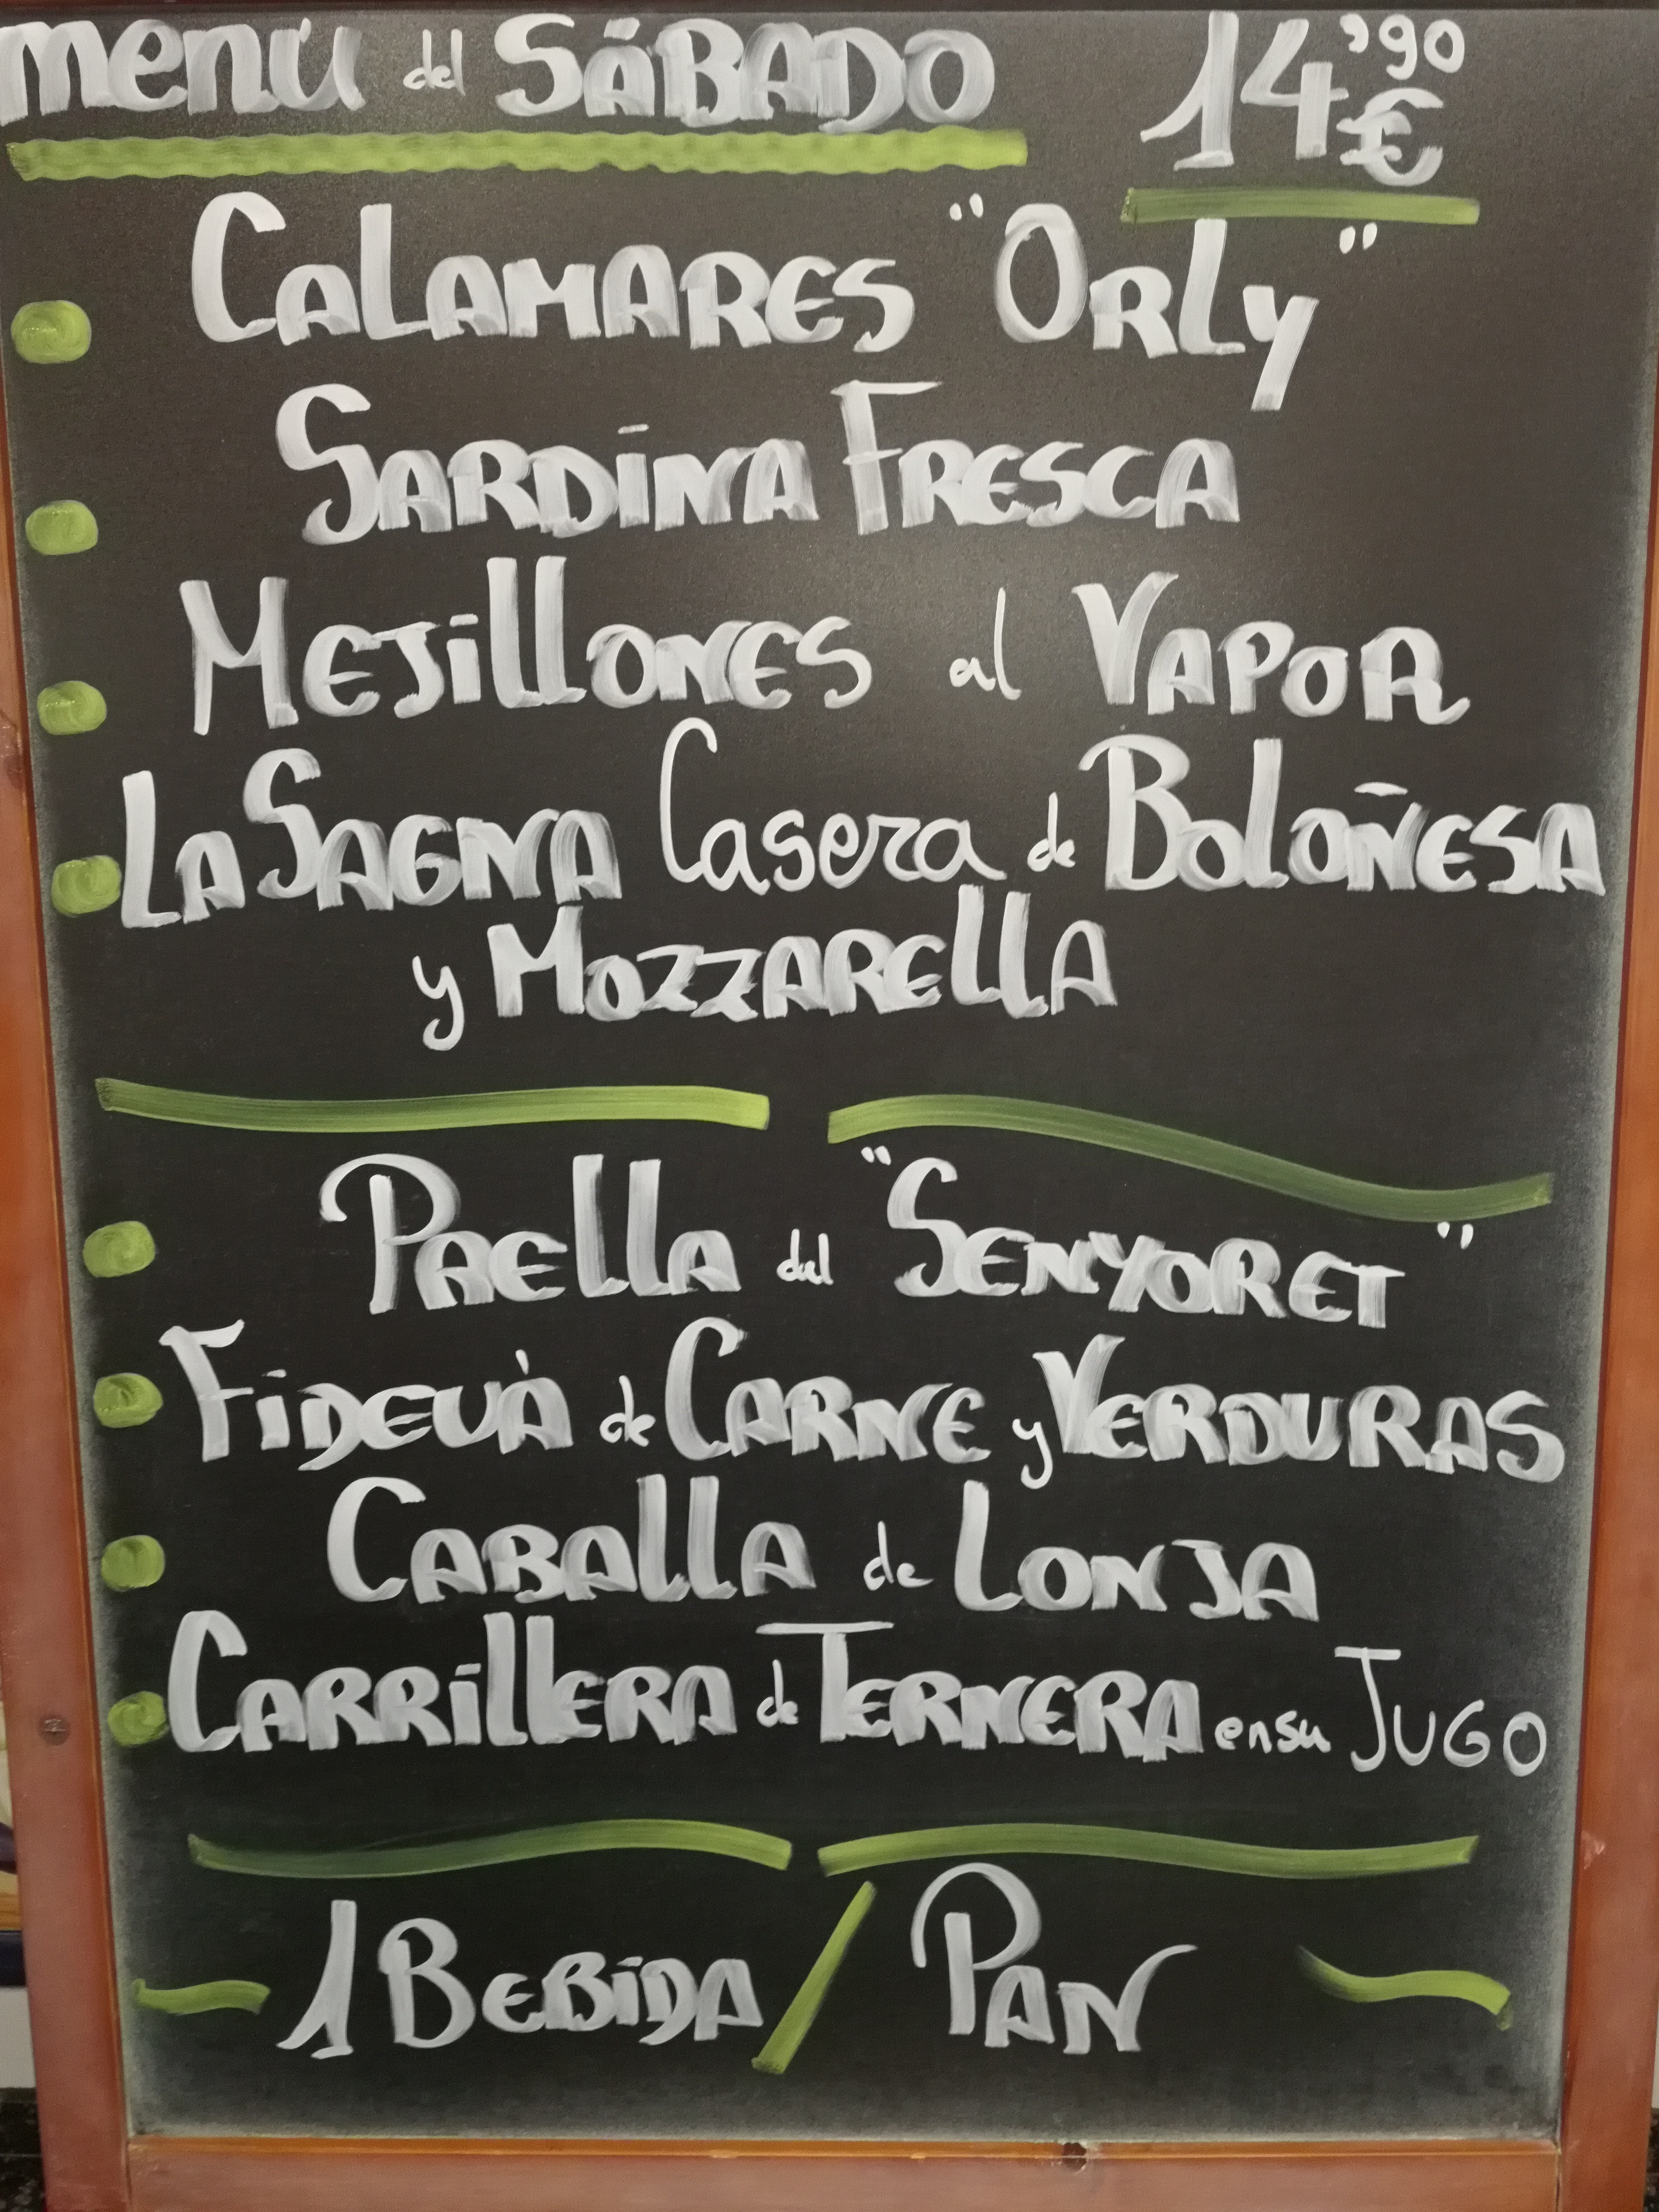 menú del SÁBADO 14'90 €
CALAMARES "ORLY"
SARDINA FRESCA
MEJILLONES al VAPOR
LASAGNA Casera de BOLOÑESA
y MOZZARELLA
PAELLA del "SENYORET"
FIDEUÀ de CARNE y VERDURAS
CABALLA de LONJA
CARRILLERA de TERNERA en su JUGO
1 BEBIDA / PAN